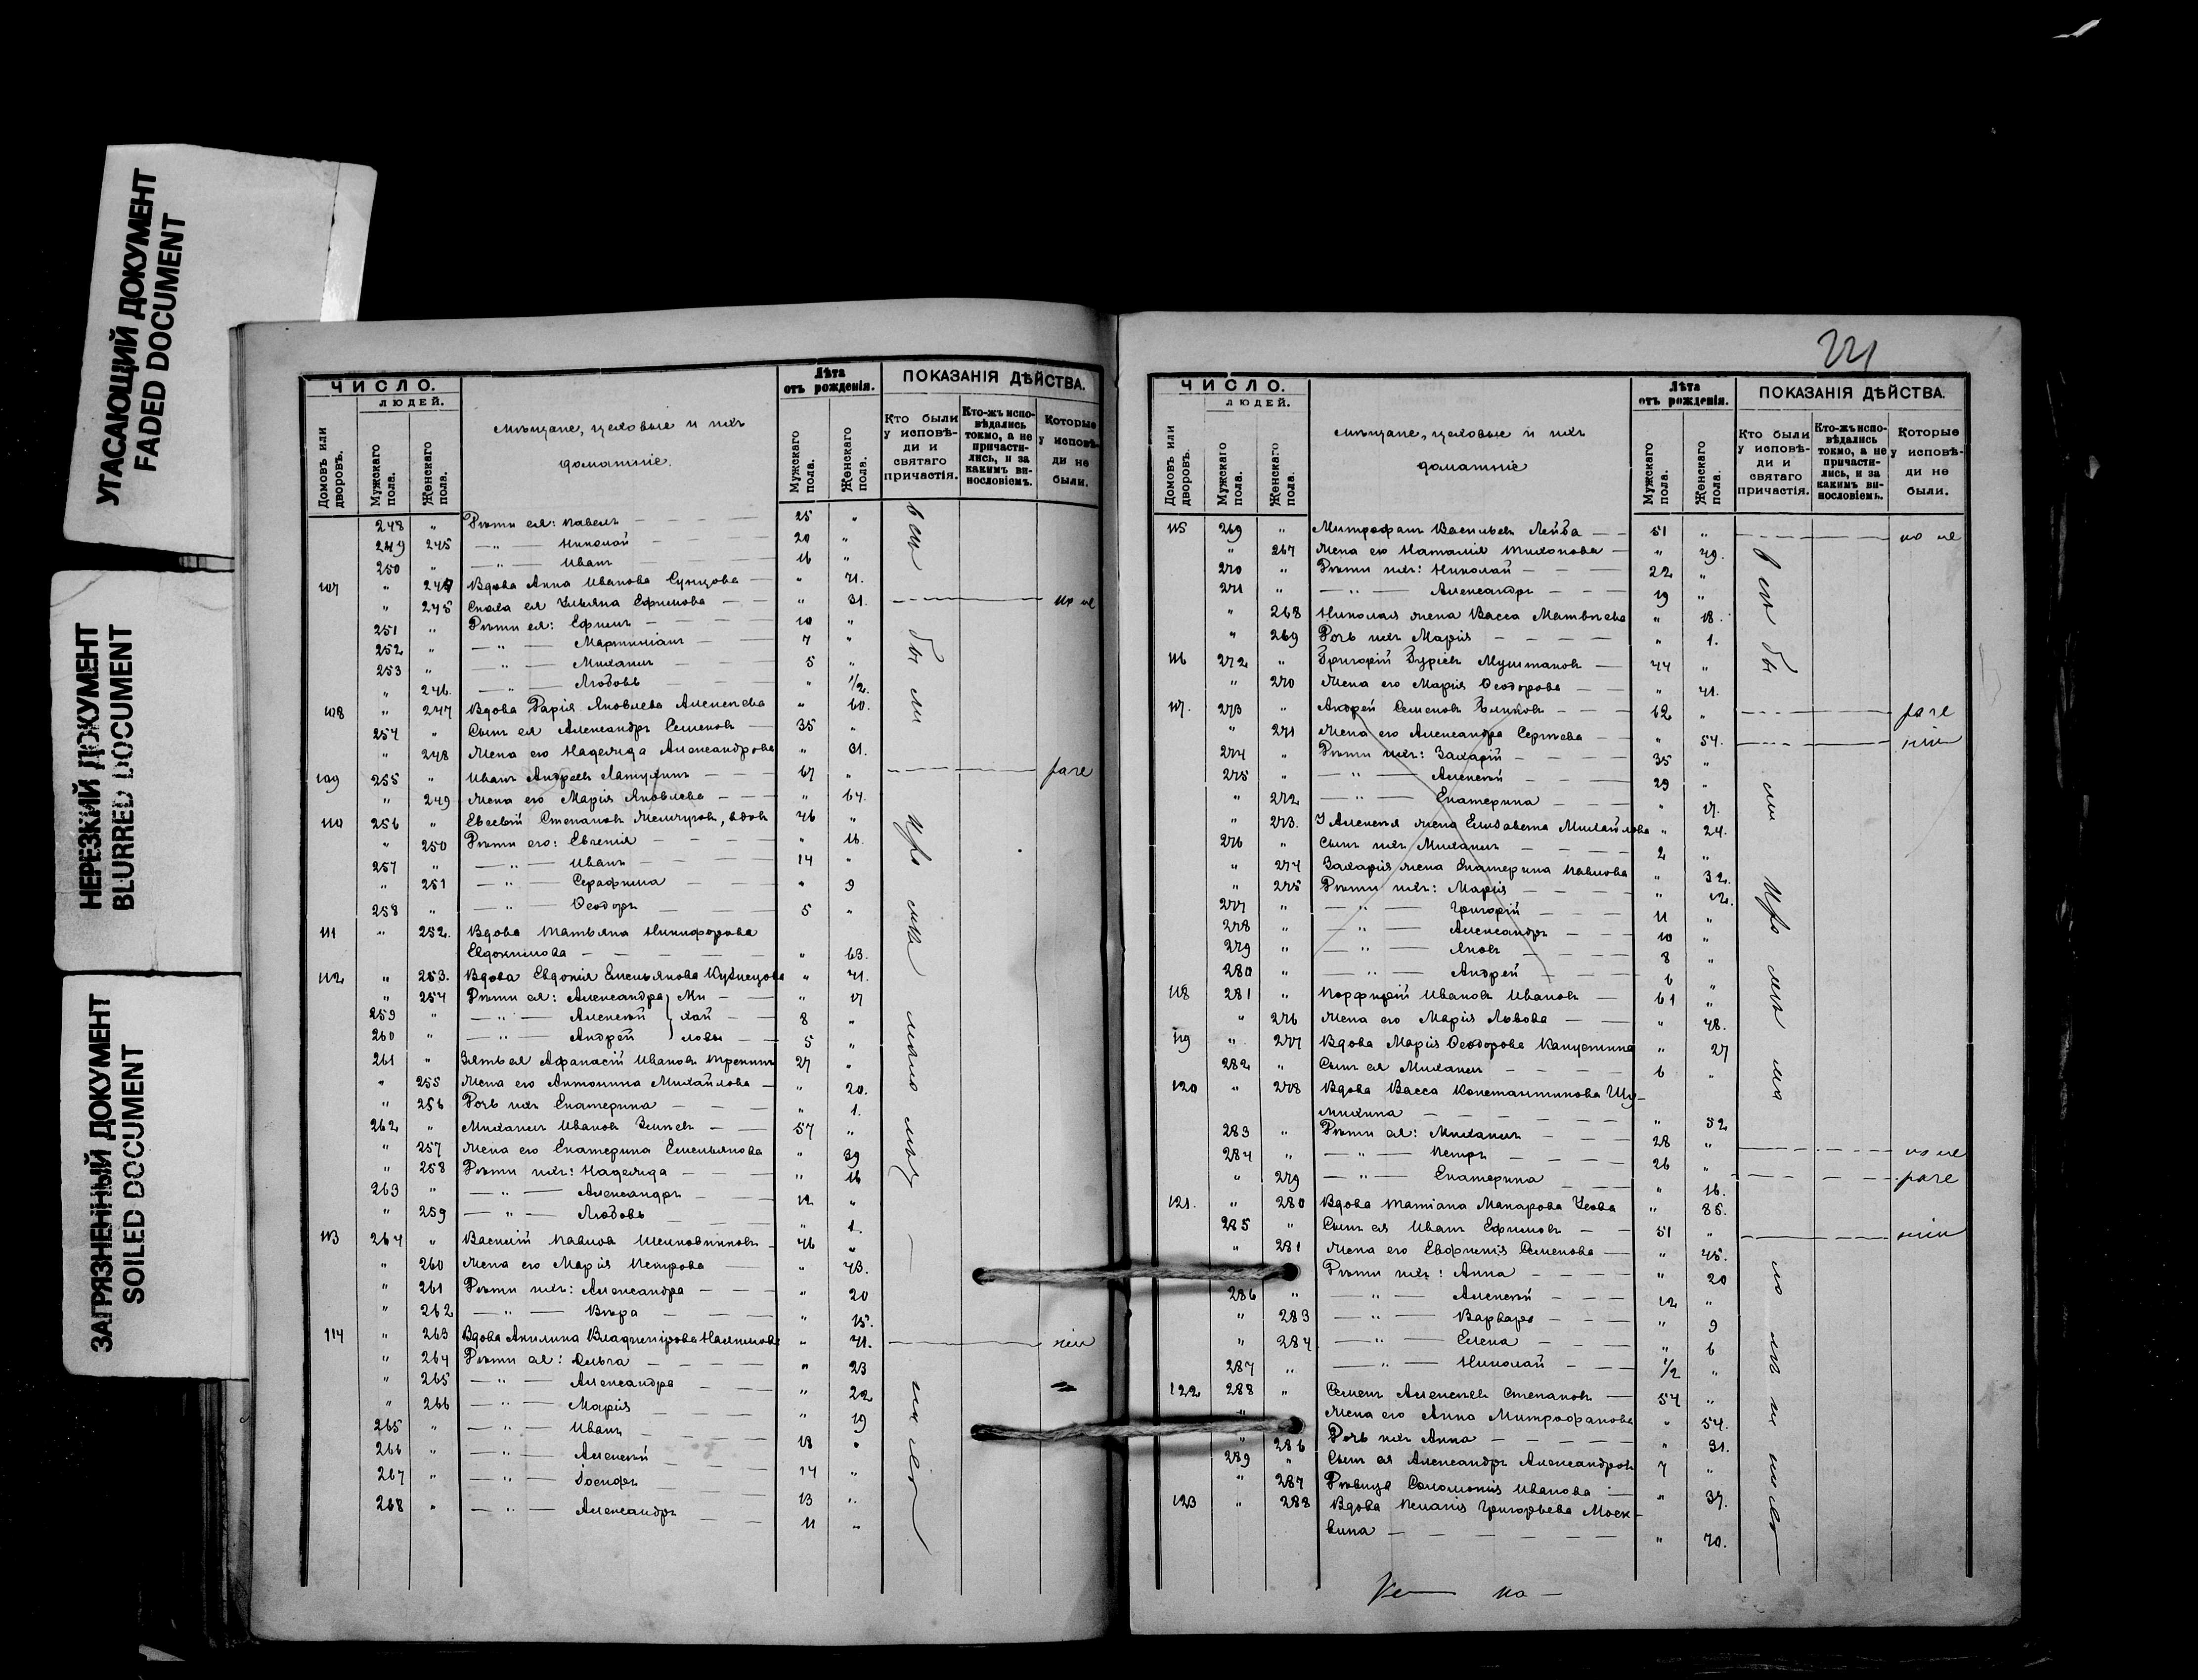 УГАСАЮЩИЙ ДОКУМЕНТ
FADED DOCUMENT
НЕРЕЗКИЙ ДОКУМЕНТ
BLURRED DOCUMENT
ЗАГРЯЗНЕННЫЙ ДОКУМЕНТ
SOILED DOCUMENT
ЧИСЛО.
ЛЮДЕЙ.
Домовъ или дворовъ.
Мужскаго пола.
Женскаго пола.
Мѣщане, цеховые и ихъ
домашніе.
Лѣта отъ рожденія.
Мужскаго пола.
Женскаго пола.
ПОКАЗАНІЯ ДѢЙСТВА.
Кто были у исповѣди и святаго причастія.
Кто-жъ исповѣдались токмо, а не причастились, и за какимъ винословіемъ.
Которые у исповѣди не были.
248 " Дѣти ея: Павелъ 25 "
249 245 — " — Николай 20 "
250 " — " — Иванъ 16 "
107 " 244 Вдова Анна Иванова Сунцова " 71.
" 245 Сноха ея Ульяна Ефимова " 31.
251 " Дѣти ея: Ефимъ 10 "
252 " — " — Мартиніанъ 7 "
253 " — " — Михаилъ 5 "
" 246. — " — Любовь " 1/2.
108 " 247 Вдова Дарія Яковлева Алексѣева " 60.
254 " Сынъ ея Александръ Семеновъ 35 "
" 248 Жена его Надежда Александрова " 31.
109 255 " Иванъ Андреевъ 67 "
" 249 Жена его Марія Яковлева " 64.
110 256 " Евсевій Степановъ Жемчуговъ, вдовъ 46 "
" 250 Дѣти его: Евгенія " 16.
257 " — " — Иванъ 14 "
" 251 — " — Серафима " 9
258 " — " — Ѳеодоръ 5 "
111 " 252. Вдова Татьяна Никифорова
Евдокимова " 63.
112 " 253. Вдова Евдокія Емельянова Кузнецова " 41.
" 254 Дѣти ея: Александра } Ми- " 17
259 " — " — Алексѣй } хай- 8 "
260 " — " — Андрей } ловы 5 "
261 " Зять ея Афанасій Иванов 27 "
" 255 Жена его Антонина Михайлова " 20.
" 256 Дочь ихъ Екатерина " 1.
262 " Михаилъ Ивановъ 57 "
" 257 Жена его Екатерина Емельянова " 39
" 258 Дѣти ихъ: Надежда " 16
263 " — " — Александръ 12 "
" 259 — " — Любовь " 1.
113 264 " Василій Павловъ Шелковниковъ 46 "
" 260 Жена его Марія Петрова " 43.
" 261 Дѣти ихъ: Александра " 20
" 262 — " — Вѣра " 15.
114 " 263 Вдова Акилина Владимірова " 41.
" 264 Дѣти ея: Ольга " 23
" 265 — " — Александра " 22
" 266 — " — Марія " 19
265 " — " — Иванъ 18 "
266 " — " — Алексѣй 14 "
267 " — " — Іосифъ 13 "
268 " — " — Александръ 11 "
221
ЧИСЛО.
ЛЮДЕЙ.
Домовъ или дворовъ.
Мужскаго пола.
Женскаго пола.
Мѣщане, цеховые и ихъ
домашніе
Лѣта отъ рожденія.
Мужскаго пола.
Женскаго пола.
ПОКАЗАНІЯ ДѢЙСТВА.
Кто были у исповѣди и святаго причастія.
Кто-жъ исповѣдались токмо, а не причастились, и за какимъ винословіемъ.
Которые у исповѣди не были.
115 269 " Митрофанъ Васильевъ Лейба 51 "
" 267 Жена его Наталія Тихонова " 49.
270 " Дѣти ихъ: Николай 22 "
271 " — " — Александръ 19 "
" 268 Николая жена Васса Матвѣева " 18.
" 269 Дочь ихъ Марія " 1.
116 272 " Григорій Гурьевъ Муштаковъ 44 "
" 270 Жена его Марія Ѳеодорова " 41.
117. 273 " Андрей Семеновъ 62 "
" 271 Жена его Александра Сергѣева " 54.
274 " Дѣти ихъ: Захарій 35 "
275 " — " — Алексѣй 29 "
" 272 — " — Екатерина " 17.
" 273. У Алексѣя жена Елисавета Михайлова " 24.
276 " Сынъ ихъ Михаилъ 2 "
" 274 Захарія жена Екатерина Павлова " 32.
" 275 Дѣти ихъ: Марія " 12.
277 " — " — Григорій 11 "
278 " — " — Александръ 10 "
279 " — " — Яковъ 8 "
280 " — " — Андрей 6 "
118 281 " Порфирій Ивановъ Ивановъ 61 "
" 276 Жена его Марія Львова " 48.
119 " 277 Вдова Марія Ѳеодорова Капустина " 27
282 " Сынъ ея Михаилъ 6 "
120 " 278 Вдова Васса Константинова Шу-
михина " 52
283 " Дѣти ея: Михаилъ 28 "
284 " — " — Петръ 26 "
" 279 — " — Екатерина " 16.
121. " 280 Вдова Татіана Макарова " 85.
285 " Сынъ ея Иванъ Ефимовъ 51 "
" 281 Жена его Евфимія Семенова " 45.
Дѣти ихъ: Анна " 20
286 " — " — Алексѣй 12 "
" 283 — " — Варвара " 9
" 284 — " — Елена " 6
287 " — " — Николай 1/2 "
122 288 " Семенъ Алексѣевъ Степановъ 54 "
" Жена его Анна Митрофанова " 54.
" 286 Дочь ихъ Анна " 31.
289 " Сынъ ея Александръ Александровъ 7 "
" 287 Дѣвица Соломонія Иванова " 37.
123 " 288 Вдова Пелагія Григорьева Моск-
вина " 70.